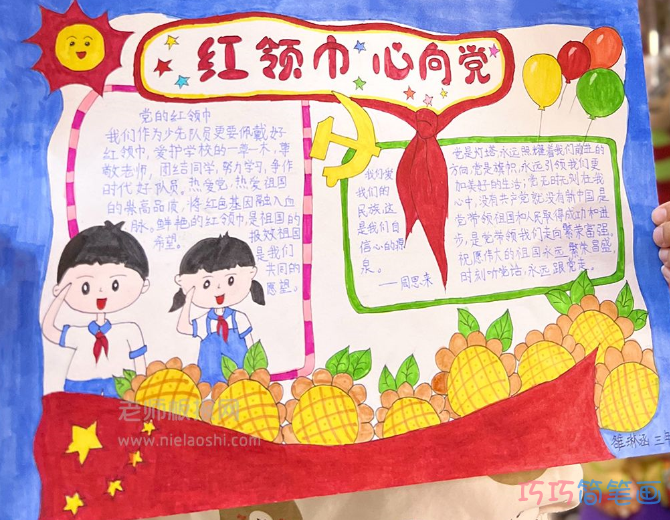 红领巾 心向党
党的红领巾
我们作为少先队员更要佩戴好
红领巾,爱护学校的一草一木,尊
敬老师,团结同学,努力学习,争作
时代好队员,热爱党,热爱祖国
的崇高品质,将红色基因融入血
脉。鲜艳的红领巾是祖国的
希望。
报效祖国
是我们
共同的
愿望。
我们爱
我们的
民族,这
是我们自
信心的源
泉。
——周恩来
党是灯塔,永远照耀着我们前进的
方向,党是旗帜,永远引领我们更
加美好的生活;党无时无刻在我
心中,没有共产党就没有新中国,是
党带领祖国和人民取得成功和进
步,是党带领我们走向繁荣富强,
祝愿伟大的祖国永远繁荣昌盛,
时刻听党话,永远跟党走。
三年
老师
www.nielaoshi.com
巧巧简笔画